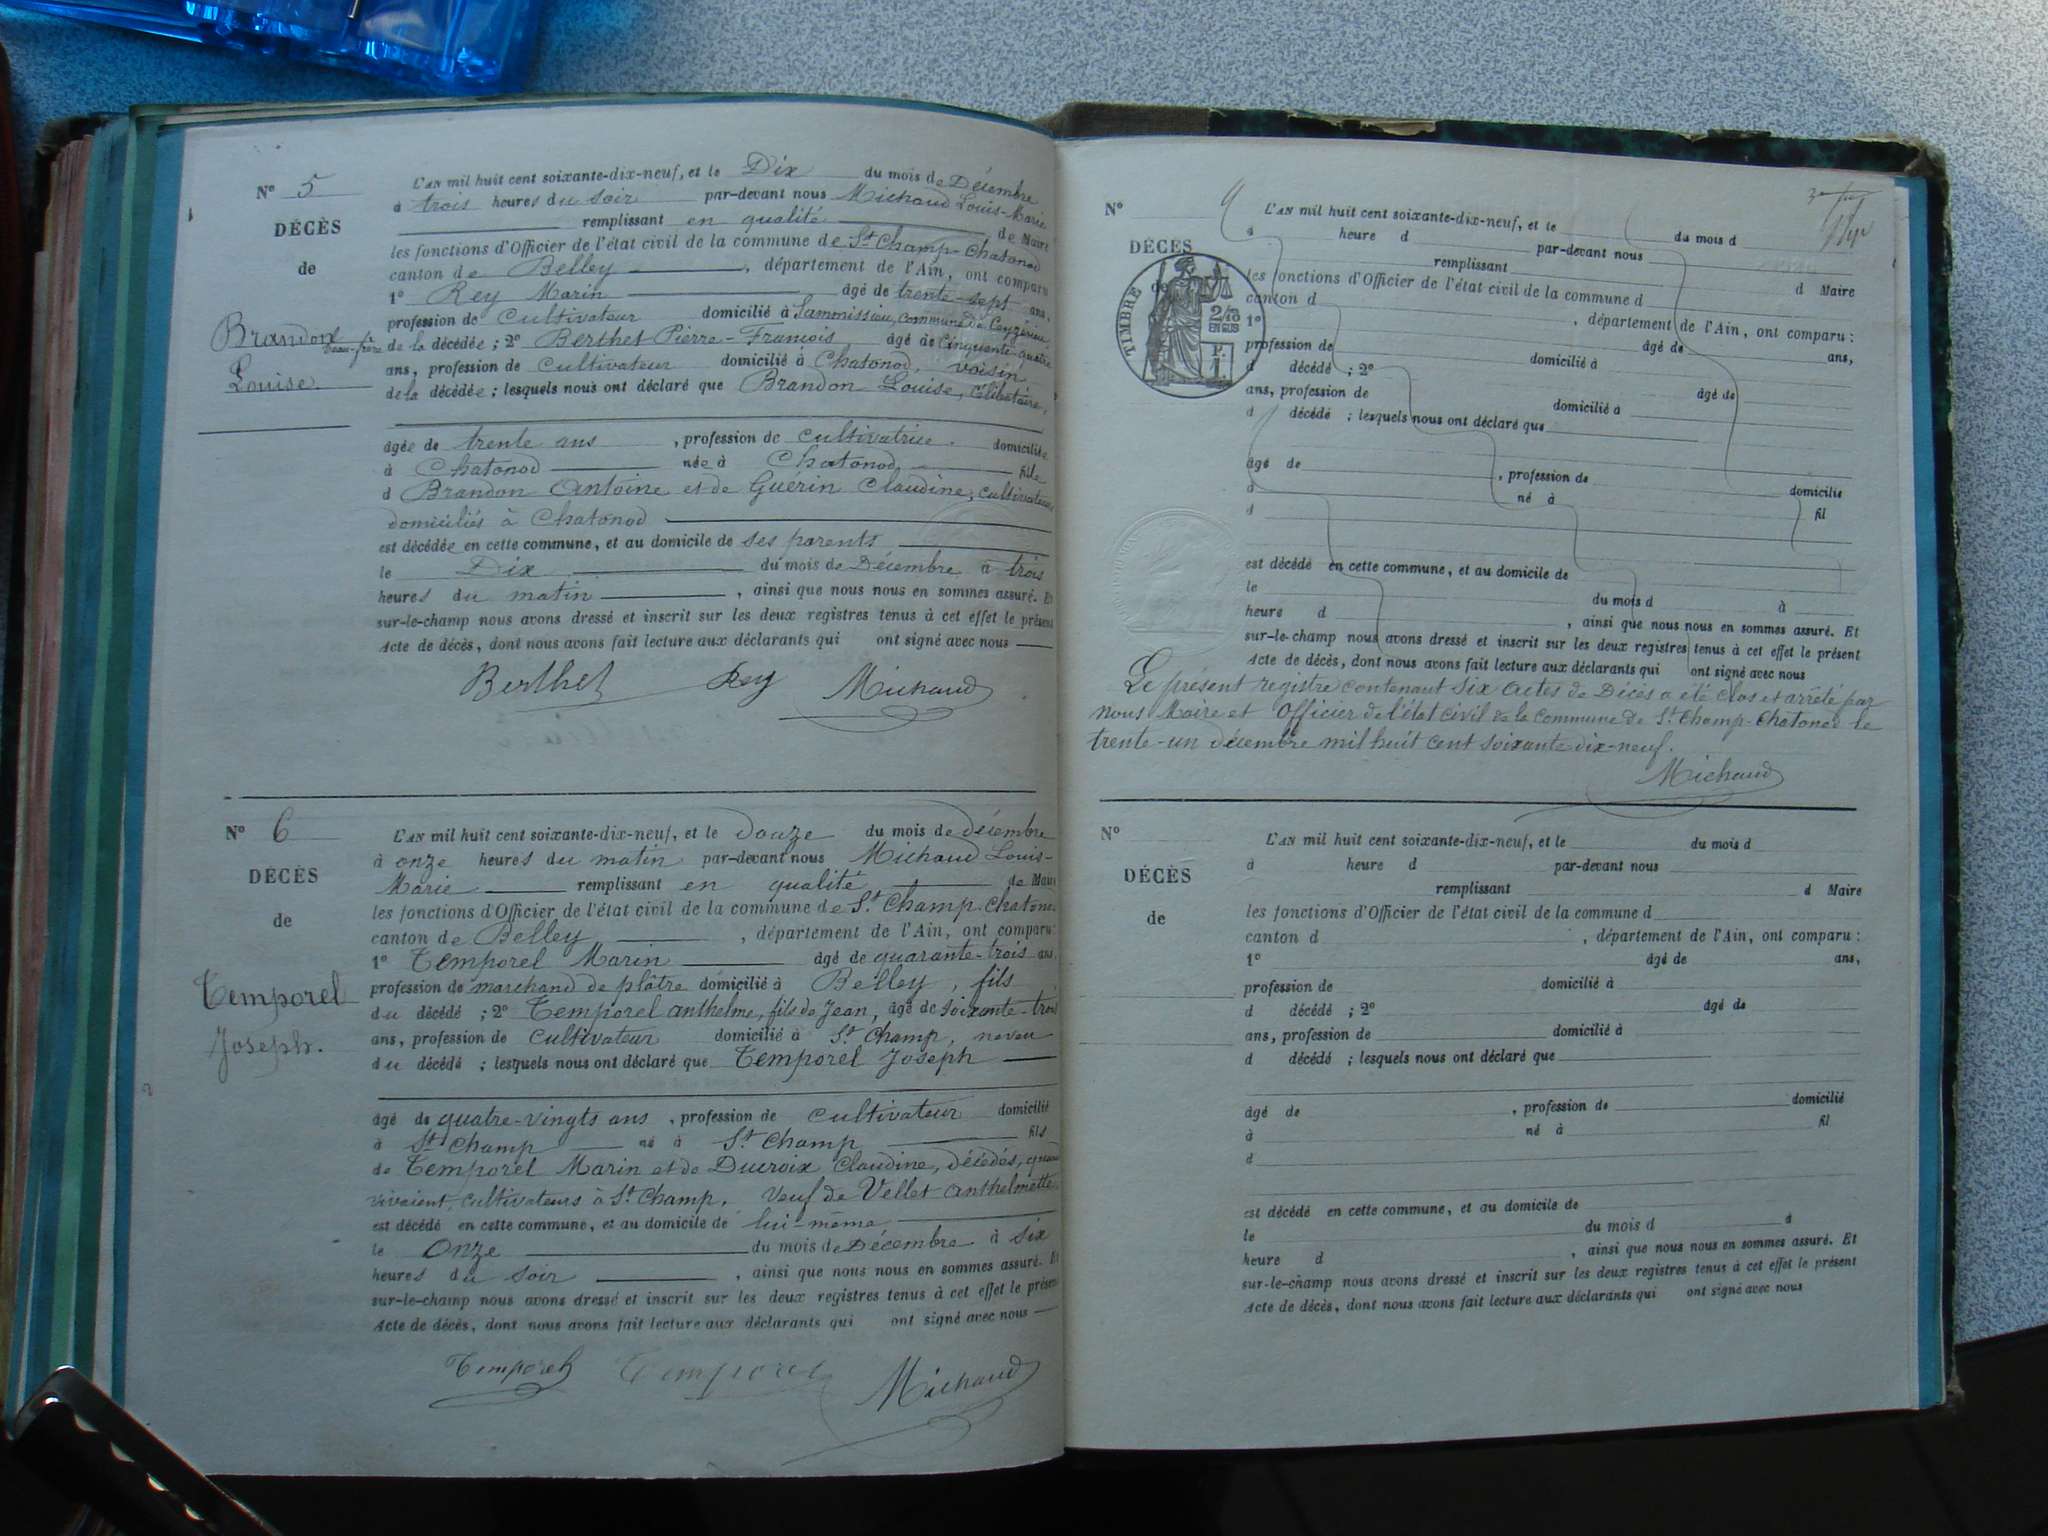 N° 5
DÉCÈS
de
Brandon
Louise
L'AN mil huit cent soixante-dix-neuf, et le Dix du mois de Décembre
à trois heures du soir par-devant nous Michaud Louis-Marie
remplissant en qualité de Maire
les fonctions d'Officier de l'état civil de la commune de St Champ-Chatonod
canton de Belley, département de l'Ain, ont comparu
1° Rey Marin âgé de trente-sept ans,
profession de cultivateur domicilié à Sammissieu, commune de Ceyzérieu,
beau-frère de la décédée ; 2° Berthet Pierre-François âgé de cinquante-quatre
ans, profession de cultivateur domicilié à Chatonod, voisin
de la décédée ; lesquels nous ont déclaré que Brandon Louise, Célibataire,
âgée de trente ans, profession de cultivatrice. domiciliée
à Chatonod née à Chatonod fille
d Brandon Antoine et de Guerin Claudine, cultivateurs
domiciliés à Chatonod
est décédée en cette commune, et au domicile de ses parents
le Dix du mois de Décembre à trois
heures du matin, ainsi que nous nous en sommes assuré. Et
sur-le-champ nous avons dressé et inscrit sur les deux registres tenus à cet effet le présent
Acte de décès, dont nous avons fait lecture aux déclarants qui ont signé avec nous
Berthet Rey Michaud
N° 6
DÉCÈS
de
Temporel
Joseph.
L'AN mil huit cent soixante-dix-neuf, et le douze du mois de décembre
à onze heures du matin par-devant nous Michaud Louis-
Marie remplissant en qualité de Maire
les fonctions d'Officier de l'état civil de la commune de St Champ-Chatonod
canton de Belley, département de l'Ain, ont comparu:
1° Temporel Marin âgé de quarante-trois ans,
profession de marchand de plâtre domicilié à Belley, fils
du décédé ; 2° Temporel anthelme, fils de Jean, âgé de soixante-trois
ans, profession de cultivateur domicilié à St Champ, neveu
du décédé ; lesquels nous ont déclaré que Temporel Joseph
âgé de quatre-vingts ans, profession de cultivateur domicilié
à St Champ né à St Champ fils
de Temporel Marin et de Ducroix Claudine, décédés, quand
vivaient, cultivateurs à St Champ, veuf de Vellet anthelmette
est décédé en cette commune, et au domicile de lui-même
le Onze du mois de Décembre à six
heures du soir, ainsi que nous nous en sommes assuré. Et
sur-le-champ nous avons dressé et inscrit sur les deux registres tenus à cet effet le présent
Acte de décès, dont nous avons fait lecture aux déclarants qui ont signé avec nous
Temporel Temporel Michaud
N°
DÉCÈS
de
TIMBRE
2/10
EN SUS
L'AN mil huit cent soixante-dix-neuf, et le du mois d
à heure d par-devant nous
remplissant d Maire
les fonctions d'Officier de l'état civil de la commune d
canton d , département de l'Ain, ont comparu :
1° âgé de ans,
profession de domicilié à
d décédé ; 2° âgé de
ans, profession de domicilié à
d décédé ; lesquels nous ont déclaré que
âgé de , profession de domicilié
à né à fil
d
est décédé en cette commune, et au domicile de
le du mois d à
heure d , ainsi que nous nous en sommes assuré. Et
sur-le-champ nous avons dressé et inscrit sur les deux registres tenus à cet effet le présent
Acte de décès, dont nous avons fait lecture aux déclarants qui ont signé avec nous
Le présent registre contenant six actes de Décès a été clos et arrêté par
nous Maire et Officier de l'état civil de la commune de St Champ-Chatonod le
trente-un décembre mil huit cent soixante dix-neuf.
Michaud
N°
DÉCÈS
de
L'AN mil huit cent soixante-dix-neuf, et le du mois d
à heure d par-devant nous
remplissant d Maire
les fonctions d'Officier de l'état civil de la commune d
canton d , département de l'Ain, ont comparu :
1° âgé de ans,
profession de domicilié à
d décédé ; 2° âgé de
ans, profession de domicilié à
d décédé ; lesquels nous ont déclaré que
âgé de , profession de domicilié
à né à fil
d
est décédé en cette commune, et au domicile de
le du mois d à
heure d , ainsi que nous nous en sommes assuré. Et
sur-le-champ nous avons dressé et inscrit sur les deux registres tenus à cet effet le présent
Acte de décès, dont nous avons fait lecture aux déclarants qui ont signé avec nous